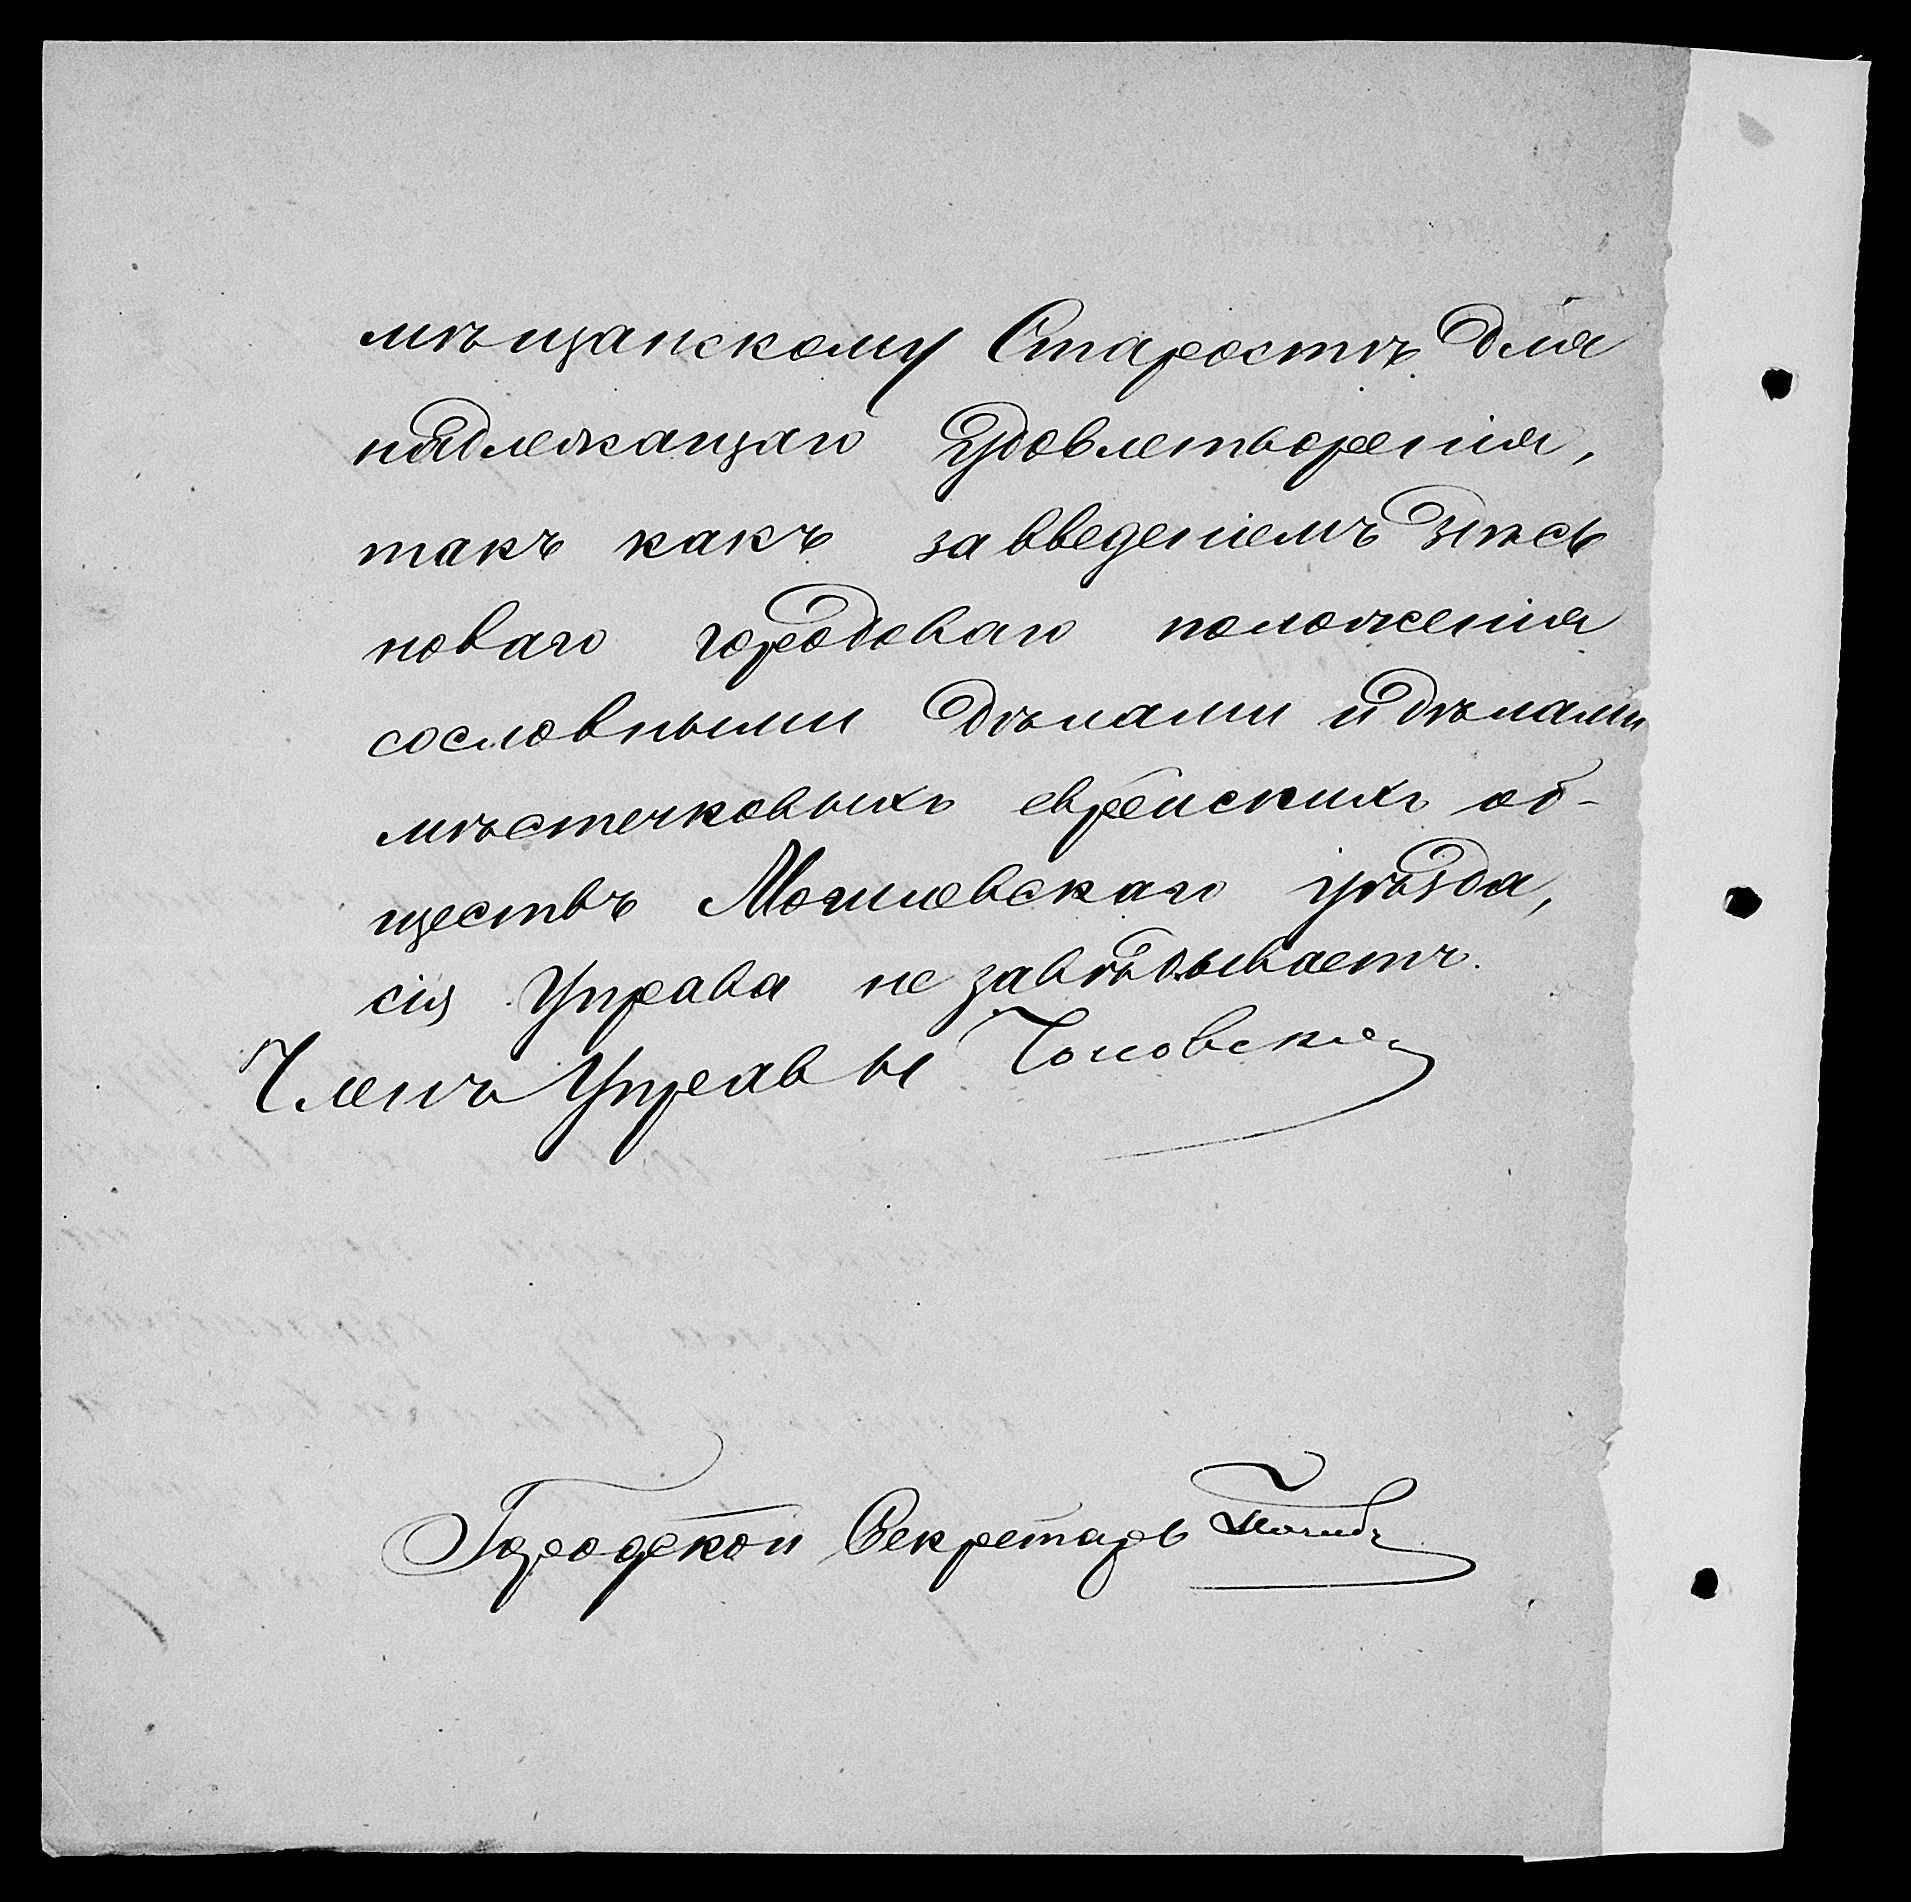 мѣщанскому Старостѣ для
надлежащаго удовлетворенія,
такъ какъ за введеніемъ здѣсь
новаго городоваго положенія
сословными дѣлами и дѣлами
мѣстечковыхъ еврейскихъ об-
ществъ Могилевскаго уѣзда,
сія Управа не завѣдываетъ.
Членъ Управы
Городской Секретарь